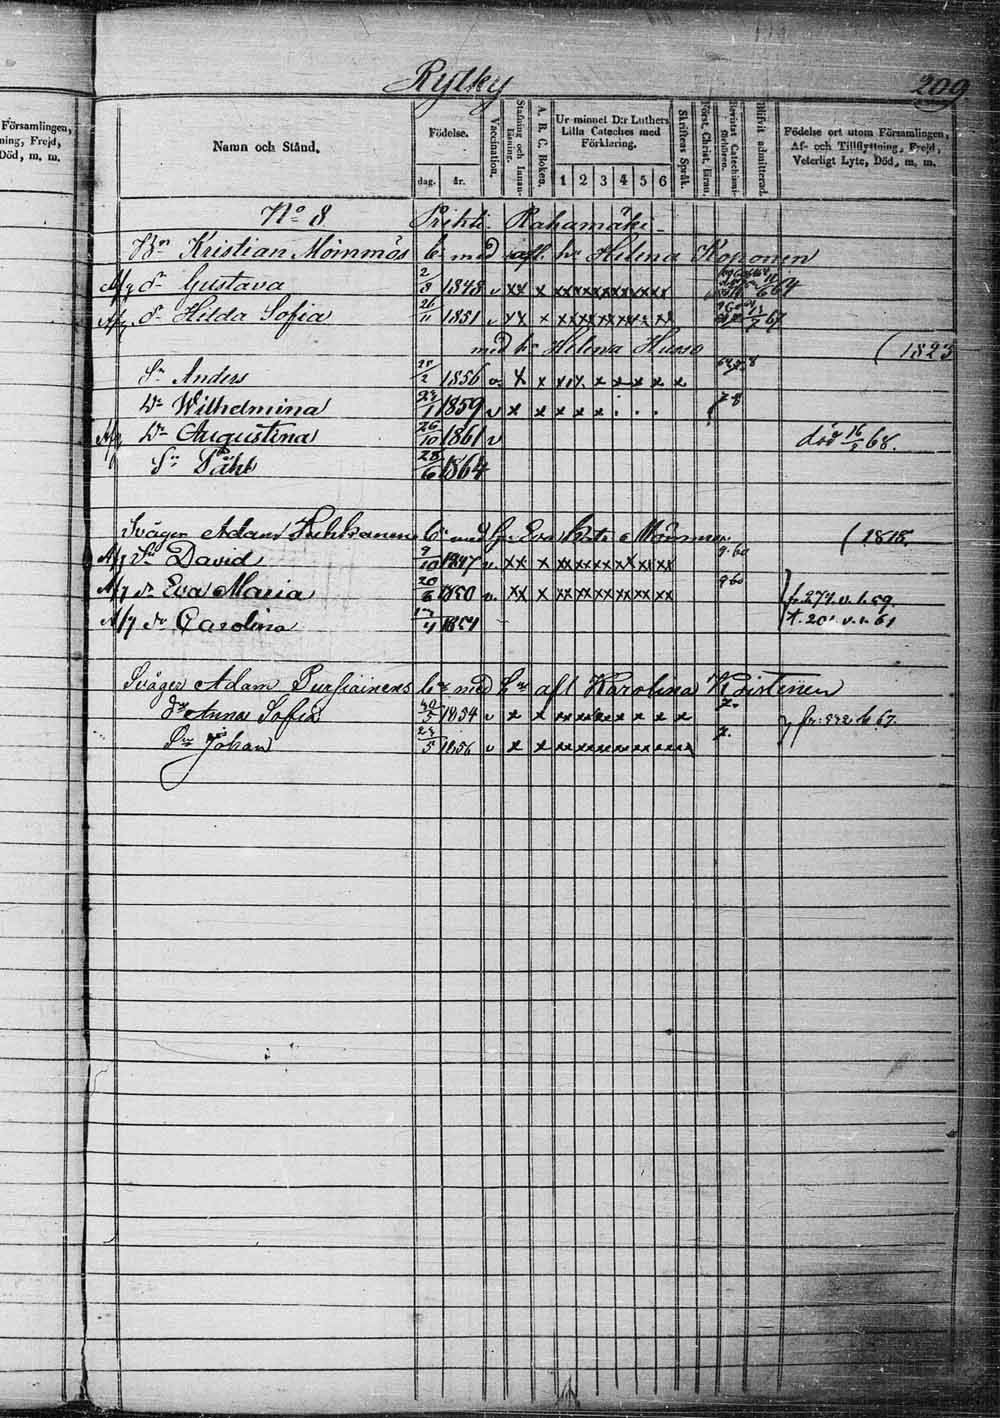 Rytky 209
Församlingen,
ning, Frejd,
Död, m. m.
Namn och Stånd.
Födelse.
dag. år.
Vaccination.
Stafning och Innan-
läsning.
A. B. C. Boken.
Ur minnet D:r Luthers
Lilla Cateches med
Förklaring.
1 2 3 4 5 6
Skriftens Språk.
Först. Christ. läran.
Bevistat Catechismi-
förhören.
Blifvit admitterad.
Födelse ort utom Församlingen,
Af- och Tillflyttning, Frejd,
Veterligt Lyte, Död, m. m.
No 8. Prihti Rahamäki
Bn Kristian Mömmös b med afl. h Helena Koponen
Afg dr Gustava 2/8 1848 v xx x xxxxxxxxxx 64
Afg dr Hilda Sofia 26/11 1851 v xx x xxxxxxxxxx 67
med h Helena Husso (1823
Sn Anders 25/2 1856 x x x x x x x x x
Dr Wilhelmina 1859 v x x x x x x . . . 78
Afg Dr Augustina 26/10 1861 v död 16/2 68.
Sn Påhl 28/6 1864
Svåger Adam Huhkanen b med h Eva Mömmö (1818.
Afg Sn David 9/10 1847 v. xx x xxxxxxxxxx 9.60
Afg dr Eva Maria 20/6 1850 v. xx x xxxxxxxxxx 9 60 fr. 274. v. b. 59.
Afg dr Carolina 17/4 1854 t. 201 v. b 61
Svåger Adam Pursiainens br med hr afl Karolina Koistinen
dr Anna Sofia 30/5 1854 v x x xx xx x x x x x 7. fr. 532 b 67.
Sn Johan 23/5 1856 v x x xxxxxxxxxxx 7.